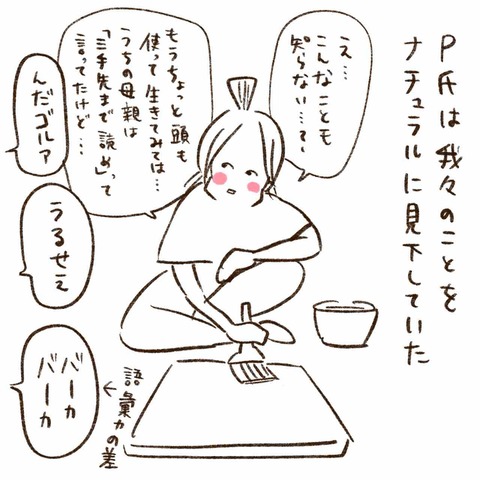 P氏は我々のことを
ナチュラルに見下していた
え…
こんなことも
知らない…て…
もうちょっと頭も
使って生きてみては…
うちの母親は
「三手先まで読め」って
言ってたけど…
んだゴルァ
うるせえ
バーカ
バーカ
←語彙力の差